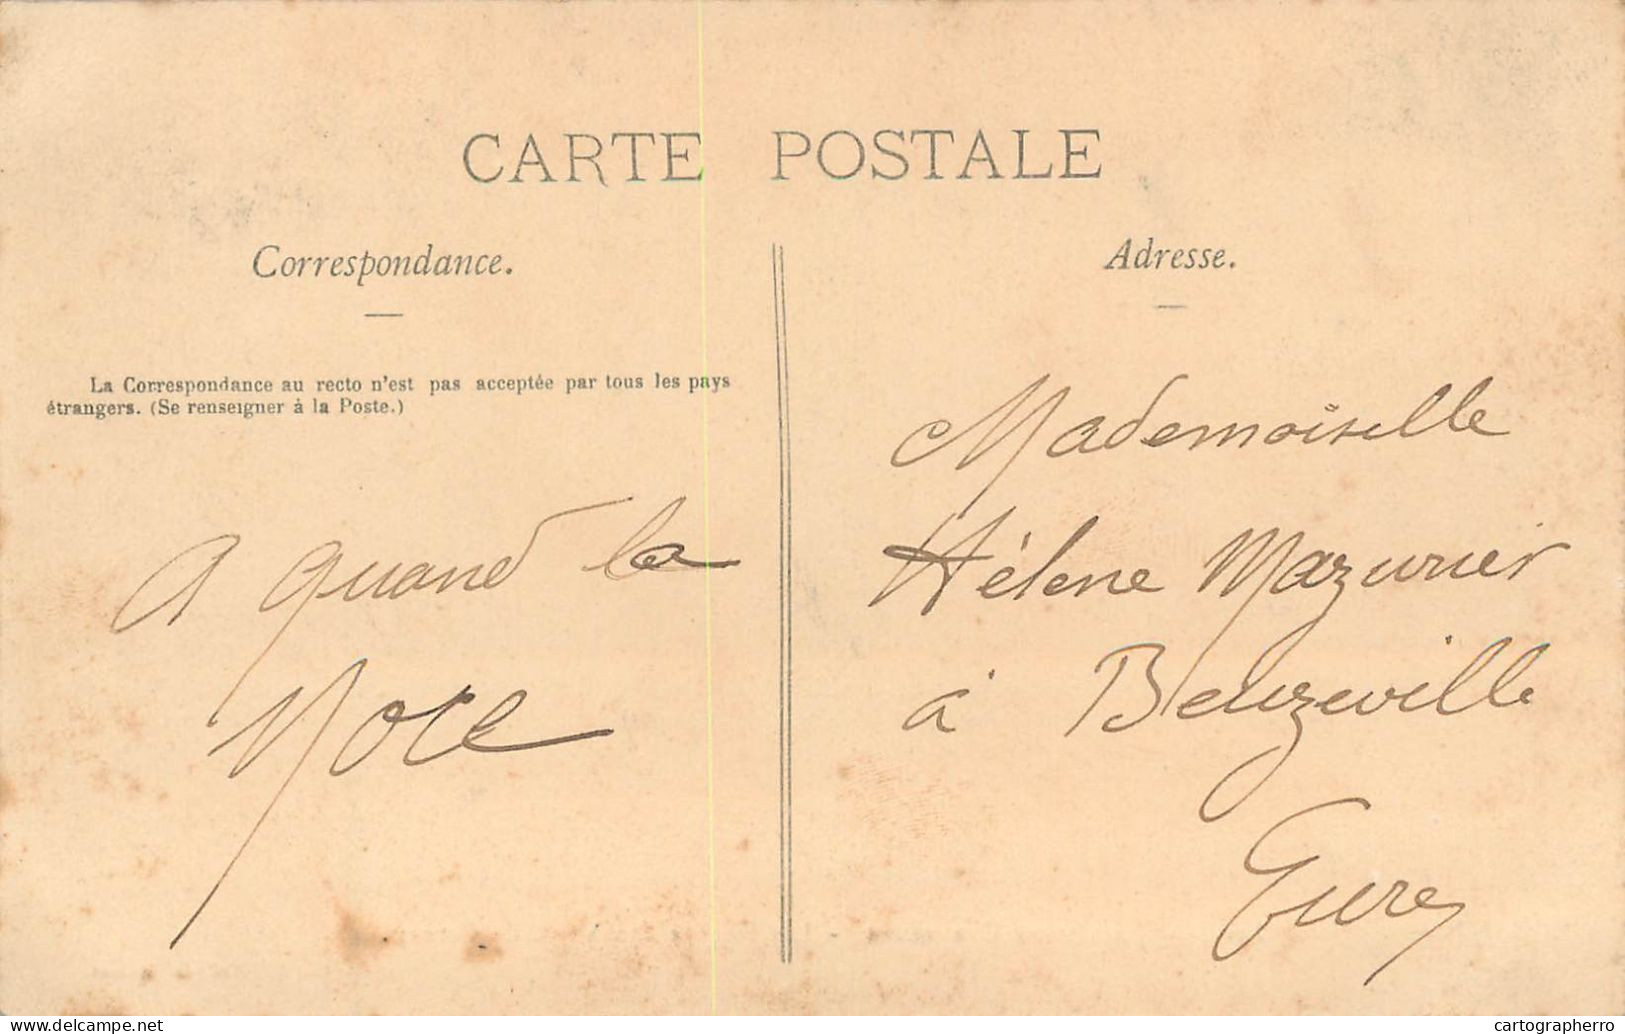 CARTE POSTALE
Correspondance.
La Correspondance au recto n'est pas acceptée par tous les pays
étrangers. (Se renseigner à la Poste.)
A quand la
Noce
Adresse.
Mademoiselle
Hélène Mazurier
à Beuzeville
Eure
www.delcampe.net
cartographerro